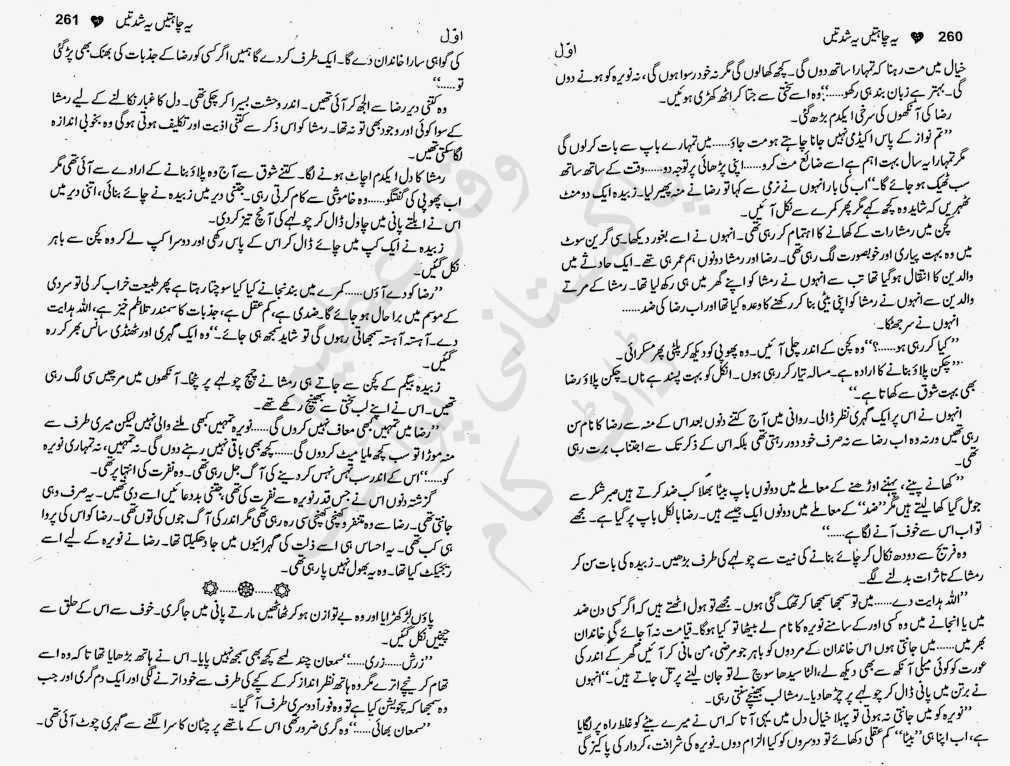 260 یہ چاہتیں یہ شدتیں
اوّل
خیال میں مت رہنا کہ تمہارا ساتھ دوں گی۔ کچھ کھالوں گی مگر نہ خود رسوا ہوں گی، نہ نویرہ کو ہونے دوں
گی۔ بہتر ہے زبان بند ہی رکھو......‘‘ وہ اسے سختی سے جتا کر اٹھ کھڑی ہوئیں۔
رضا کی آنکھوں کی سرخی ایکدم بڑھ گئی۔
’’تم نواز کے پاس اکیڈمی نہیں جانا چاہتے ہو مت جاؤ......میں تمہارے باپ سے بات کرلوں گی
مگر تمہارا یہ سال بہت اہم ہے اسے ضائع مت کرو......اپنی پڑھائی پر توجہ دو......وقت کے ساتھ ساتھ
سب ٹھیک ہو جائے گا۔‘‘ اب کی بار انہوں نے نرمی سے کہا تو رضا نے منہ پھیر لیا۔ زبیدہ ایک دو منٹ
ٹھہریں کہ شاید وہ کچھ کہے مگر پھر کمرے سے نکل آئیں۔
کچن میں رمشا رات کے کھانے کا اہتمام کر رہی تھی۔ انہوں نے اسے بغور دیکھا۔ سی گرین سوٹ
میں وہ بہت پیاری اور خوبصورت لگ رہی تھی۔ رضا اور رمشا دونوں ہم عمر ہی تھے۔ ایک حادثے میں
والدین کا انتقال ہوگیا تھا تب سے انہوں نے رمشا کو اپنے گھر میں ہی رکھ لیا تھا۔ رمشا کے مرتے
والدین سے انہوں نے رمشا کو اپنی بیٹی بنا کر رکھنے کا وعدہ کیا تھا اور اب رضا کی ضد......
انہوں نے سر جھٹکا۔
’’کیا کر رہی ہو......؟‘‘ وہ کچن کے اندر چلی آئیں۔ وہ پھوپی کو دیکھ کر پلٹی پھر مسکرائی۔
’’چکن پلاؤ بنانے کا ارادہ ہے۔ مسالہ تیار کر رہی ہوں۔ انکل کو بہت پسند ہے ناں۔ چکن پلاؤ رضا
بھی بہت شوق سے کھاتا ہے۔‘‘
انہوں نے اس پر ایک گہری نظر ڈالی۔ روانی میں آج کتنے دنوں بعد اس کے منہ سے رضا کا نام سن
رہی تھیں ورنہ وہ اب رضا سے نہ صرف خود دور رہتی تھی بلکہ اس کے ذکر تک سے اجتناب برت رہی
تھی۔
’’کھانے پینے، پہننے اوڑھنے کے معاملے میں دونوں باپ بیٹا بھلا کب ضد کرتے ہیں صبر شکر سے
جو مل گیا کھا لیتے ہیں مگر ’’ضد‘‘ کے معاملے میں دونوں ایک جیسے ہیں۔ رضا بالکل باپ پر گیا ہے۔ مجھے
تو اب اس سے خوف آنے لگا ہے......‘‘
وہ فریج سے دودھ نکال کر چائے بنانے کی نیت سے چولہے کی طرف بڑھیں۔ زبیدہ کی بات سن کر
رمشا کے تاثرات بدلنے لگے۔
’’اللہ ہدایت دے......میں تو سمجھا سمجھا کر تھک گئی ہوں۔ مجھے تو ہول اٹھتے ہیں کہ اگر کسی دن ضد
میں یا انجانے میں وہ کسی اور کے سامنے نویرہ کا نام لے بیٹھا تو کیا ہوگا۔ قیامت نہ آجائے گی خاندان
بھر میں......میں جانتی ہوں اس خاندان کے مردوں کو باہر جو مرضی، من مانی کر آئیں گھر کے اندر کی
عورت کو کوئی میلی آنکھ سے بھی دیکھ لے، الٹا سیدھا سوچ لے تو جان لینے پر تل جاتے ہیں۔‘‘ انہوں
نے برتن میں پانی ڈال کر چولہے پر چڑھا دیا۔ رمشا لب بھینچے سنتی رہی۔
’’نویرہ کو میں جانتی نہ ہوتی تو پہلا خیال دل میں یہی آتا کہ اس نے میرے بیٹے کو غلط راہ پر لگایا
ہے، اب اپنا ہی ’’بیٹا‘‘ کم عقلی دکھائے تو دوسروں کو کیا الزام دوں۔ نویرہ کی شرافت، کردار کی پاکیزگی
261 یہ چاہتیں یہ شدتیں
اوّل
کی گواہی سارا خاندان دے گا۔ ایک طرف کردے گا ہمیں اگر کسی کو رضا کے جذبات کی بھنک بھی پڑ گئی
تو......‘‘
وہ کتنی دیر رضا سے الجھ کر آئی تھیں۔ اندر وحشت بسیرا کر چکی تھی۔ دل کا غبار نکالنے کے لیے رمشا
کے سوا کوئی اور وجود بھی تو نہ تھا۔ رمشا کو اس ذکر سے کتنی اذیت اور تکلیف ہوتی ہوگی وہ بخوبی اندازہ
لگا سکتی تھیں۔
رمشا کا دل ایکدم اچاٹ ہونے لگا۔ کتنے شوق سے آج وہ پلاؤ بنانے کے ارادے سے آئی تھی مگر
اب پھوپی کی گفتگو......وہ خاموشی سے کام کرتی رہی۔ جتنی دیر میں زبیدہ نے چائے بنائی، اتنی دیر میں
اس نے ابلتے پانی میں چاول ڈال کر چولہے کی آنچ تیز کردی۔
زبیدہ نے ایک کپ میں چائے ڈال کر اس کے پاس رکھی اور دوسرا کپ لے کر وہ کچن سے باہر
نکل گئیں۔
’’رضا کو دے آؤں......کمرے میں بند نجانے کیا کیا سوچتا رہتا ہے پھر طبیعت خراب کرلی تو سردی
کے موسم میں برا حال ہو جائے گا۔ ضدی ہے، کم عقل ہے، جذبات کا سمندر تلاطم خیز ہے، اللہ ہدایت
دے۔ آہستہ آہستہ سمجھاتی رہوں گی تو شاید سمجھ ہی جائے۔‘‘ وہ ایک گہری اور ٹھنڈی سانس بھر کر رہ
گئیں۔
زبیدہ بیگم کے کچن سے جاتے ہی رمشا نے چمچ چولہے پر پٹخا۔ آنکھوں میں مرچیں سی لگ رہی
تھیں۔ اس نے اپنے لب سختی سے بھینچ رکھے تھے۔
’’رضا میں تمہیں کبھی معاف نہیں کروں گی......نویرہ تمہیں کبھی ملنے والی نہیں لیکن میری طرف سے
منہ موڑا تو سب کچھ ملیا میٹ کر دوں گی......کچھ بھی باقی نہیں رہنے دوں گی۔ نہ تمہیں، نہ تمہاری نویرہ
کو......‘‘ اس کے اندر سب تہس نہس کر دینے کی آگ جل رہی تھی۔ وہ نفرت کی انتہا پر تھی۔
گزشتہ دنوں اس نے جس قدر نویرہ سے نفرت کی تھی، جتنی بددعائیں اسے دی تھیں۔ یہ صرف وہی
جانتی تھی۔ رضا سے وہ متنفر و کھنچی کھنچی سی رہ رہی تھی مگر اندر کی آگ جوں کی توں تھی۔ رضا کو اس کی پروا
ہی کب تھی۔ یہ احساس ہی اسے ذلت کی گہرائیوں میں جا دھکیلتا تھا۔ رضا نے نویرہ کے لیے اسے
ریجیکٹ کیا تھا۔ وہ یہ بھول نہیں پا رہی تھی۔
پاؤں لڑکھڑایا اور وہ بے توازن ہو کر ٹھاٹھیں مارتے پانی میں جا گری۔ خوف سے اس کے حلق سے
چیخیں نکل گئیں۔
’’زرش......زری......‘‘ سمعان چند لمحے کچھ بھی سمجھ نہیں پایا۔ اس نے ہاتھ بڑھایا تھا تاکہ وہ اسے
تھام کر نیچے اترے مگر وہ ہاتھ نظر انداز کر کے کچے کی طرف سے خود اترنے لگی اور ایک دم گری اور جب
وہ سمجھا کہ سچویشن کیا ہے تو وہ فوراً دوسری طرف آ گیا۔
’’سمعان بھائی......‘‘ وہ گری ضرور تھی اس کے ماتھے پر چٹان کا سرا لگنے سے گہری چوٹ آئی تھی۔